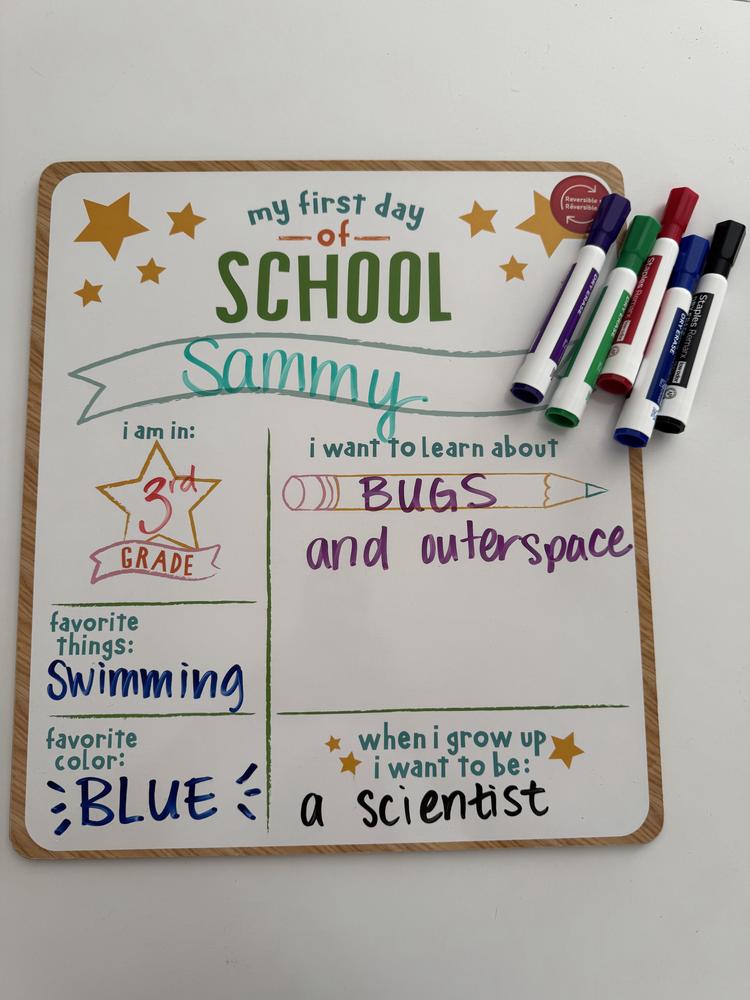 my first day
of
SCHOOL
Reversible
Réversible
Sammy
i am in:
3rd
GRADE
i want to learn about
BUGS
and outerspace
favorite
things:
Swimming
favorite
color:
BLUE
when i grow up
i want to be:
a scientist
DRY ERASE
DRY ERASE
Staples Remarx
DRY ERASE
Staples Remarx